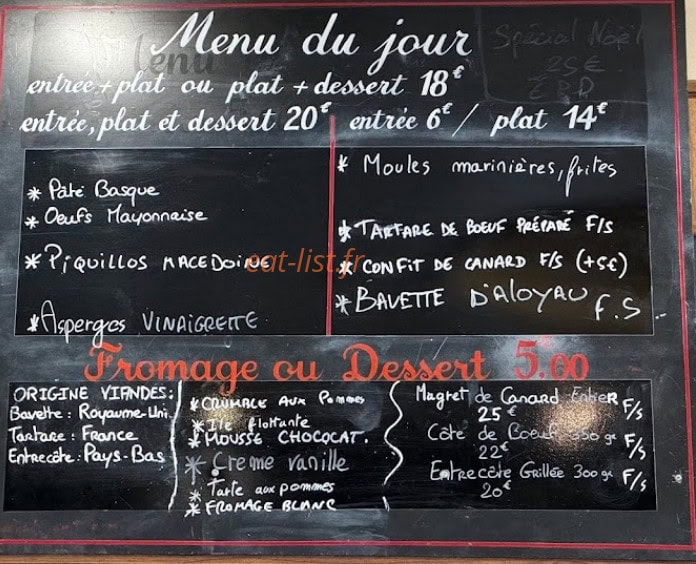 Menu du jour
Spécial Noël
25€
entrée + plat ou plat + dessert 18€
entrée, plat et dessert 20€ entrée 6€ / plat 14€
* Pâté Basque
* Oeufs Mayonnaise
* PIQUILLOS MACEDOINE
* Asperges VINAIGRETTE
* Moules marinières, frites
* TARTARE DE BOEUF PRÉPARÉ F/S
* CONFIT DE CANARD F/S (+5€)
* BAVETTE D'ALOYAU F.S
eat-list.fr
Fromage ou Dessert 5.00
ORIGINE VIANDES:
Bavette : Royaume-Uni
Tartare : France
Entrecôte : Pays-Bas
* CRUMBLE AUX Pommes
* Ile flottante
* MOUSSE CHOCOCAT.
* Creme vanille
* Tarte aux pommes
* FROMAGE BLANC
Magret de Canard Entier F/S
25€
Côte de Boeuf 350 gr F/S
22€
Entrecôte Grillée 300 gr F/S
20€